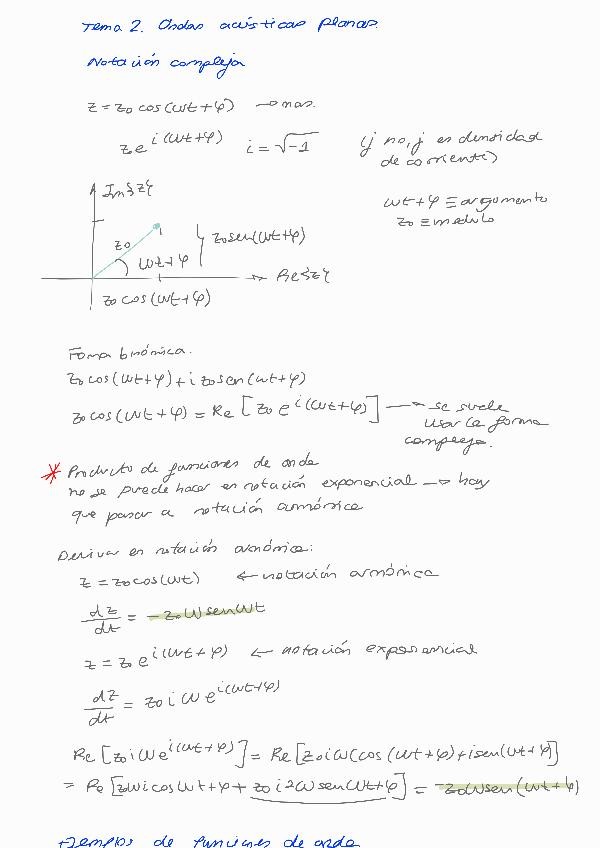 Tema 2. Ondas acústicas planas.
Notación compleja
z = z₀ cos(ωt+φ) → mas.
z e^{i(ωt+φ)} i = √-1 (j no, j es densidad
de corriente)
Im{z}
ωt+φ ≡ argumento
z₀ ≡ modulo
z₀
ωt+φ
z₀sen(ωt+φ)
Re{z}
z₀ cos(ωt+φ)
Forma binómica.
z₀ cos(ωt+φ) + i z₀ sen(ωt+φ)
z₀ cos(ωt+φ) = Re [z₀ e^{i(ωt+φ)}] → se suele
usar la forma
compleja.
* Producto de funciones de onda
no se puede hacer en notación exponencial → hay
que pasar a notación armónica
Derivar en notación armónica:
z = z₀ cos(ωt) ← notación armónica
dz/dt = -z₀ω sen ωt
z = z₀ e^{i(ωt+φ)} ← notación exponencial
dz/dt = z₀ i ω e^{i(ωt+φ)}
Re [z₀ i ω e^{i(ωt+φ)}] = Re [z₀ i ω (cos (ωt+φ) + i sen(ωt+φ)]
= Re [z₀ω i cos ωt+φ + z₀ i² ω sen ωt+φ] = -z₀ω sen (ωt+φ)
Ejemplos de funciones de onda